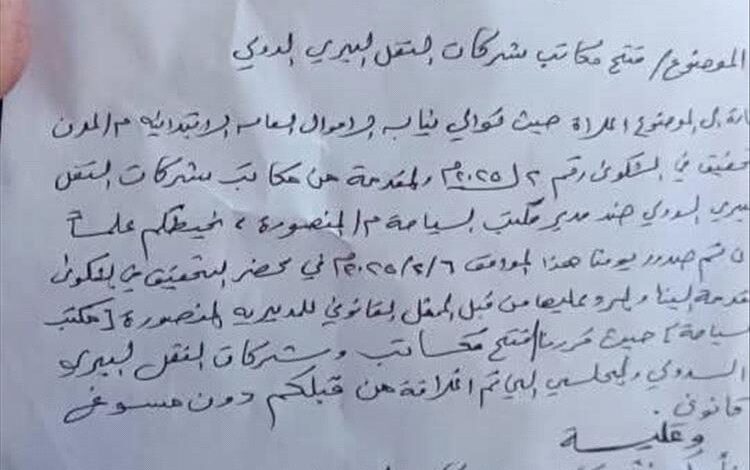 الموضوع/ فتح مكاتب شركات النقل البري الدولي
بالموضوع اعلاة حيث توالي نيابه الاموال العامه الابتدائيه م/عدن
تحقيق في الشكوى رقم ٢ لـ ٢٠٢٥م والمقدمة من مكاتب شركات النقل
البري الدولي ضد مدير مكتب السياحة م/المنصورة ، نحيطكم علماً
ان تم صدور يومنا هذا الموافق ٢٠٢٥/٢/٦م في محضر التحقيق في الشكوى
مقدمة الينا والرد عليها من قبل الممثل القانوني للمديريه المنصورة [مكتب
سياحة] حيث قررنا/فتح مكاتب وشركات النقل البري
الدولي والمحلي التي تم اغلاقة من قبلكم دون مسوغ
قانوني .
وعلية